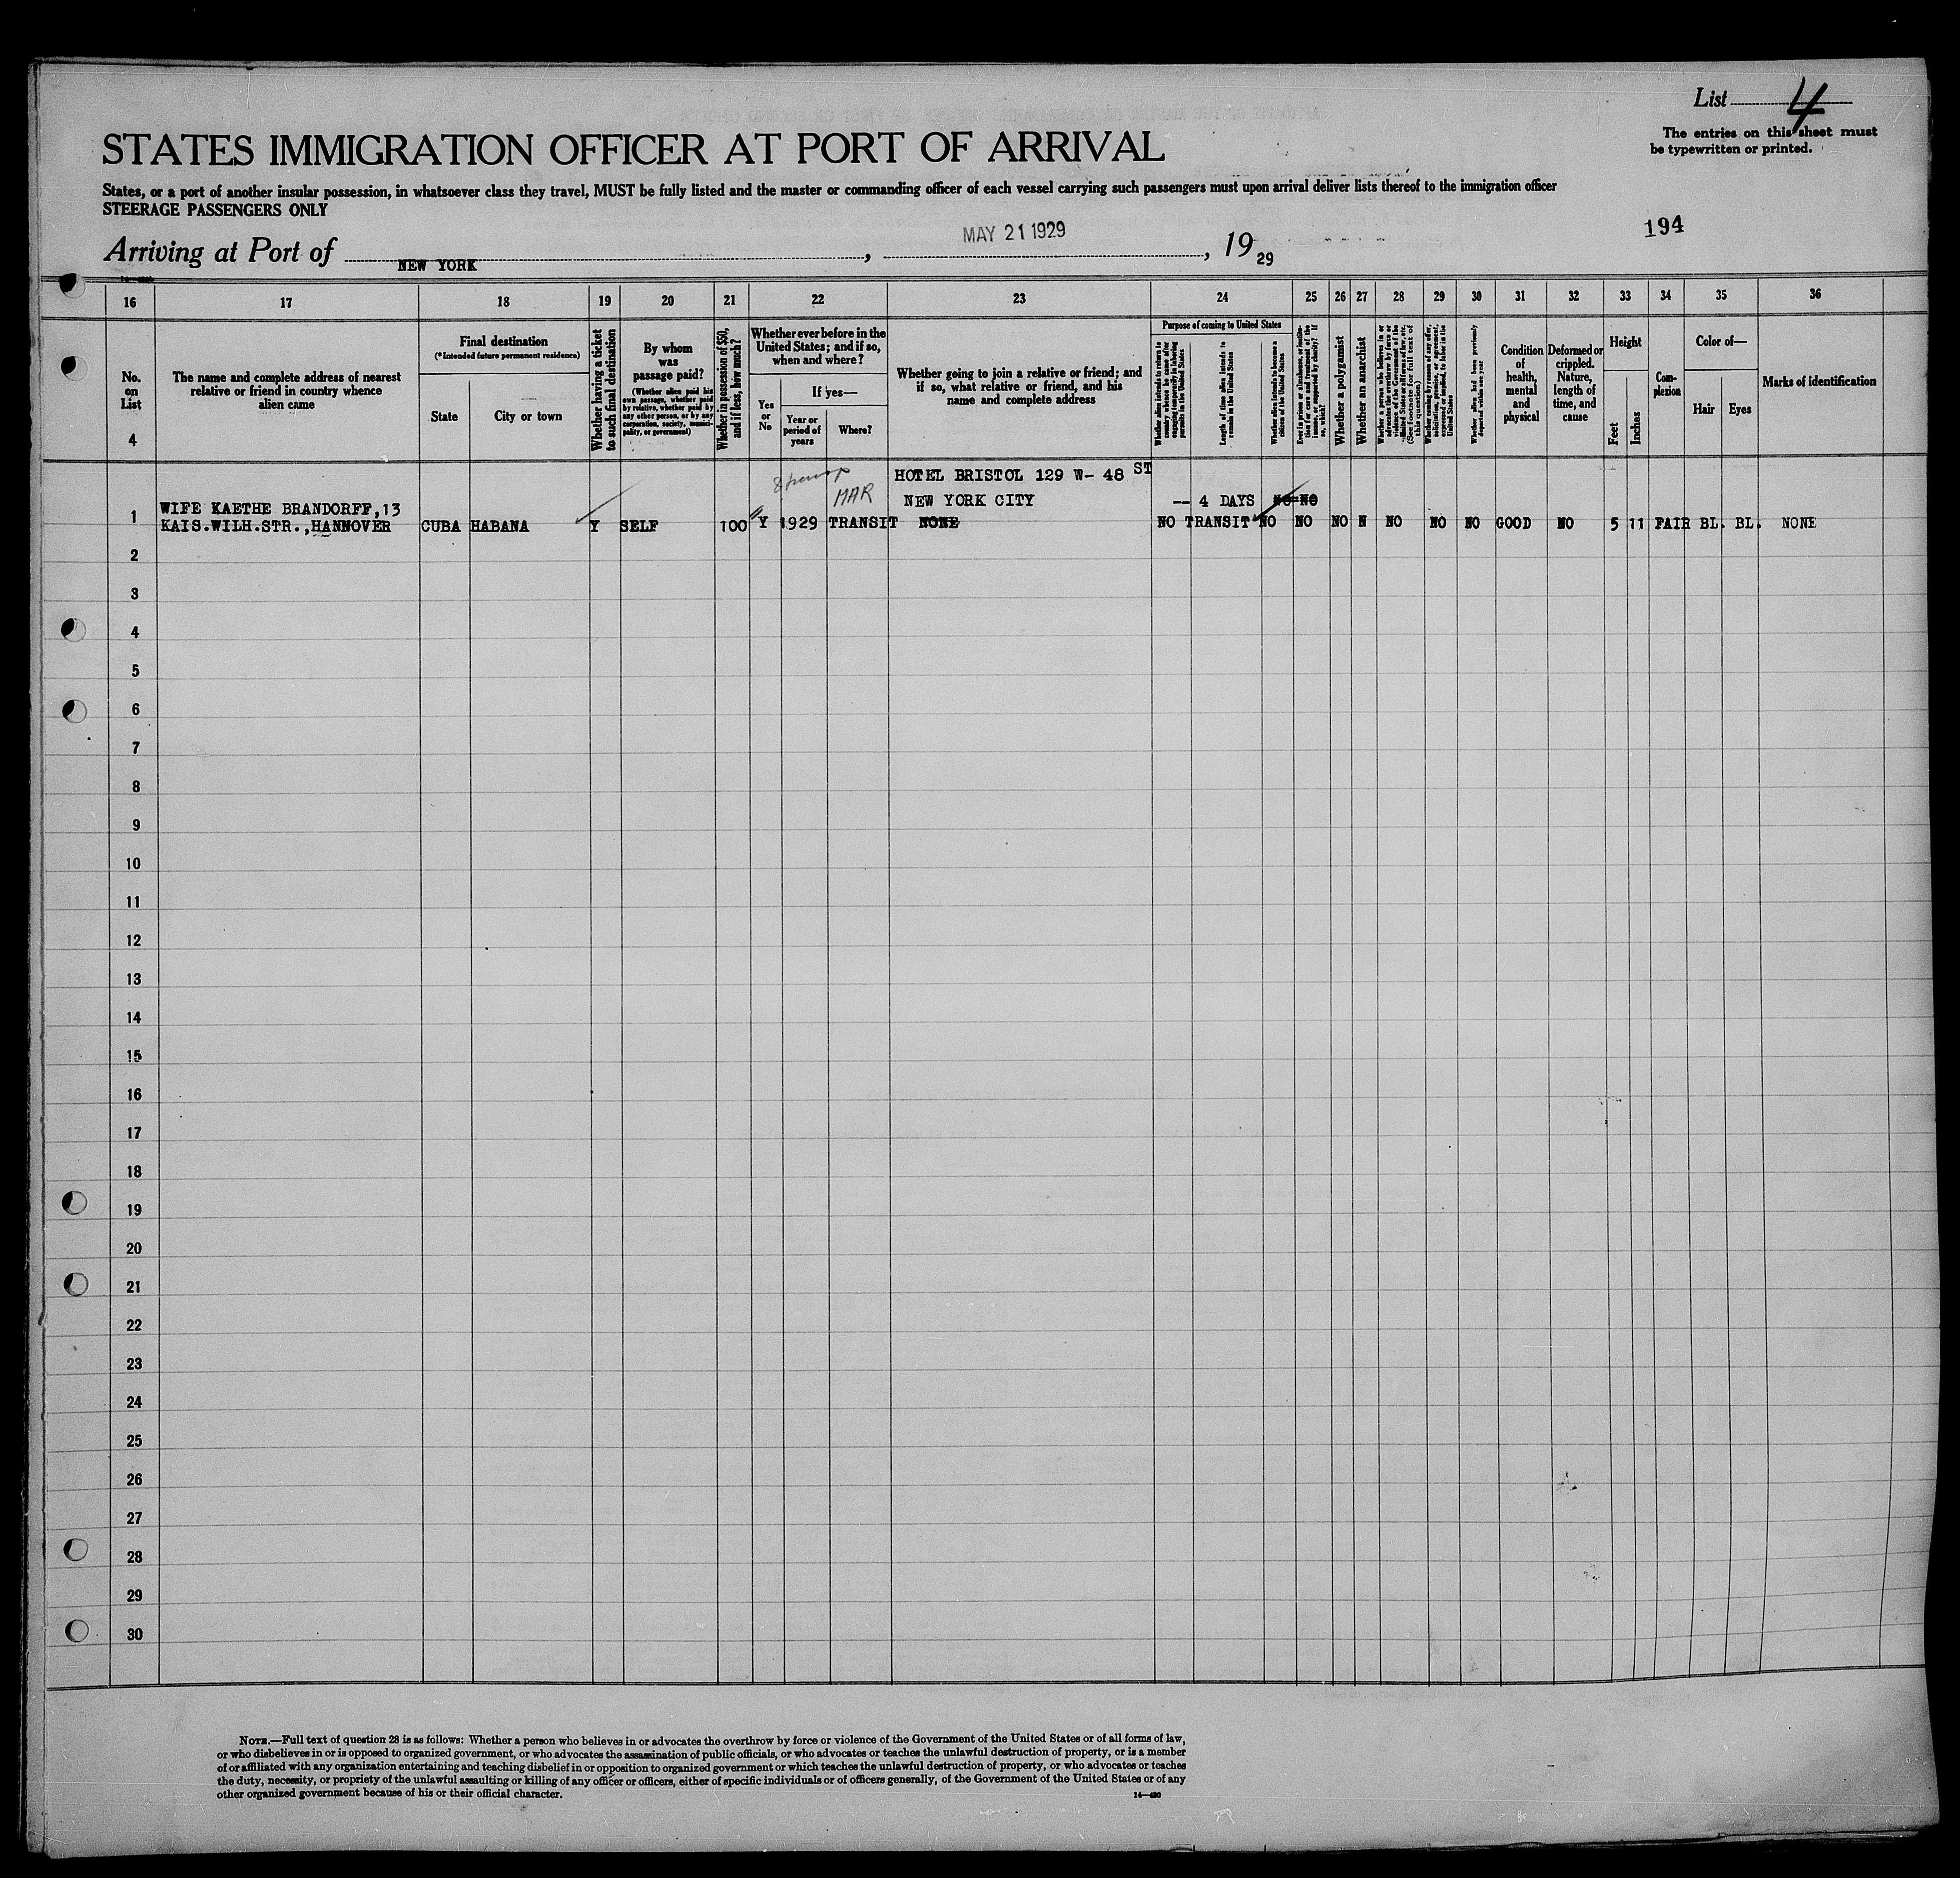 List 4
The entries on this sheet must
be typewritten or printed.
STATES IMMIGRATION OFFICER AT PORT OF ARRIVAL
States, or a port of another insular possession, in whatsoever class they travel, MUST be fully listed and the master or commanding officer of each vessel carrying such passengers must upon arrival deliver lists thereof to the immigration officer
STEERAGE PASSENGERS ONLY
194
Arriving at Port of NEW YORK, MAY 21 1929, 19 29
16 17 18 19 20 21 22 23 24 25 26 27 28 29 30 31 32 33 34 35 36
No.
on
List
4
The name and complete address of nearest
relative or friend in country whence
alien came
Final destination
(*Intended future permanent residence)
State
City or town
Whether having a ticket
to such final destination
By whom
was
passage paid?
(Whether alien paid his
own passage, whether paid
by relative, whether paid by
any other person, or by any
corporation, society, munici-
pality, or government)
Whether in possession of $50,
and if less, how much?
Whether ever before in the
United States; and if so,
when and where?
Yes
or
No
If yes—
Year or
period of
years
Where?
Whether going to join a relative or friend; and
if so, what relative or friend, and his
name and complete address
Purpose of coming to United States
Whether alien intends to return to
country whence he came after
engaging temporarily in laboring
pursuits in the United States
Length of time alien intends to
remain in the United States
Whether alien intends to become a
citizen of the United States
Ever in prison or almshouse, or institu-
tion for care and treatment of the
insane, or supported by charity? If
so, which?
Whether a polygamist
Whether an anarchist
Whether a person who believes in or
advocates the overthrow by force or
violence of the Government of the
United States or all forms of law, etc.
(See footnote for full text of
this question)
Whether coming by reason of any offer,
solicitation, promise, or agreement,
expressed or implied, to labor in the
United States
Whether alien had been previously
deported within one year
Condition
of
health,
mental
and
physical
Deformed or
crippled.
Nature,
length of
time, and
cause
Height
Feet
Inches
Com-
plexion
Color of—
Hair
Eyes
Marks of identification
HOTEL BRISTOL 129 W- 48 ST
MAR NEW YORK CITY -- 4 DAYS NO NO
WIFE KAETHE BRANDORFF,13
1 KAIS.WILH.STR.,HANNOVER CUBA HABANA Y SELF 100 Y 1929 TRANSIT NONE NO TRANSIT NO NO NO N NO NO NO GOOD NO 5 11 FAIR BL. BL. NONE
2
3
4
5
6
7
8
9
10
11
12
13
14
15
16
17
18
19
20
21
22
23
24
25
26
27
28
29
30
NOTE.—Full text of question 28 is as follows: Whether a person who believes in or advocates the overthrow by force or violence of the Government of the United States or of all forms of law,
or who disbelieves in or is opposed to organized government, or who advocates the assassination of public officials, or who advocates or teaches the unlawful destruction of property, or is a member
of or affiliated with any organization entertaining and teaching disbelief in or opposition to organized government or which teaches the unlawful destruction of property, or who advocates or teaches
the duty, necessity, or propriety of the unlawful assaulting or killing of any officer or officers, either of specific individuals or of officers generally, of the Government of the United States or of any
other organized government because of his or their official character.
14—480